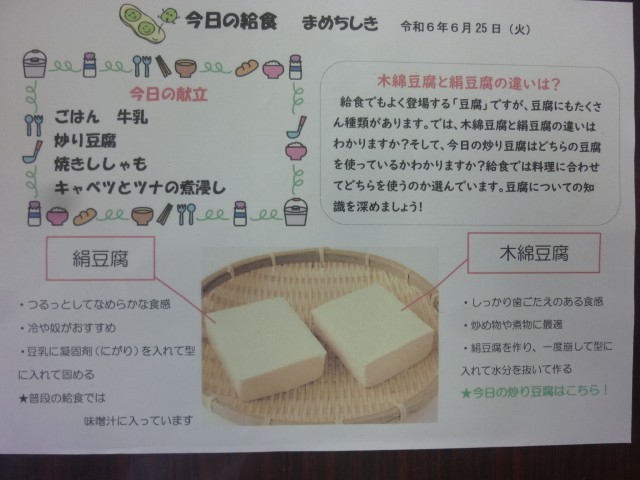 今日の給食　まめちしき　令和6年6月25日（火）
今日の献立
ごはん　牛乳
炒り豆腐
焼きししゃも
キャベツとツナの煮浸し
木綿豆腐と絹豆腐の違いは？
給食でもよく登場する「豆腐」ですが、豆腐にもたくさ
ん種類があります。では、木綿豆腐と絹豆腐の違いは
わかりますか？そして、今日の炒り豆腐はどちらの豆腐
を使っているかわかりますか？給食では料理に合わせ
てどちらを使うのか選んでいます。豆腐についての知
識を深めましょう！
絹豆腐
・つるっとしてなめらかな食感
・冷や奴がおすすめ
・豆乳に凝固剤（にがり）を入れて型
に入れて固める
★普段の給食では
味噌汁に入っています
木綿豆腐
・しっかり歯ごたえのある食感
・炒め物や煮物に最適
・絹豆腐を作り、一度崩して型に
入れて水分を抜いて作る
★今日の炒り豆腐はこちら！